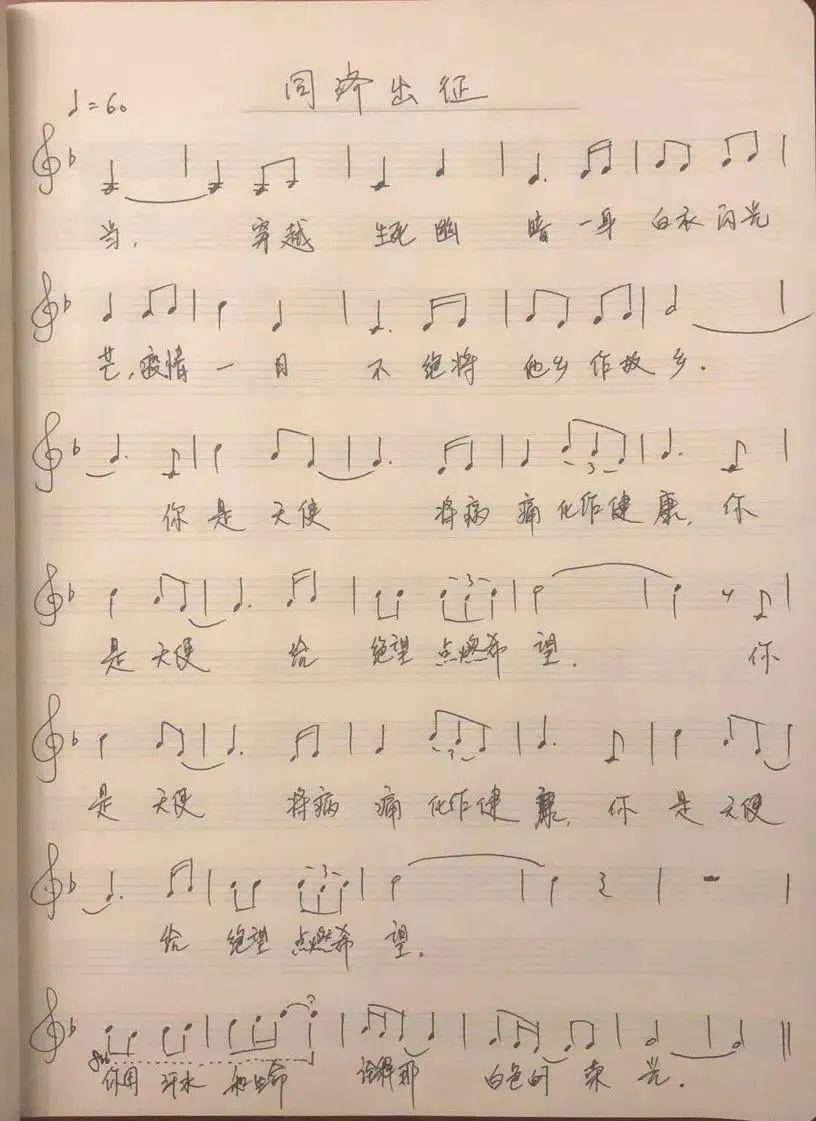 同济出征
♩=60
当, 穿越 生死 幽 暗 一身 白衣 闪光
芒, 疫情 一 日 不 绝将 他乡 作故 乡.
你 是 天使 将病 痛 化作健 康, 你
是 天使 给 绝望 点燃希 望. 你
是 天使 将病 痛 化作健 康, 你 是 天使
给 绝望 点燃希 望.
你用 汗水 和生命 诠释那 白色的 荣 光.